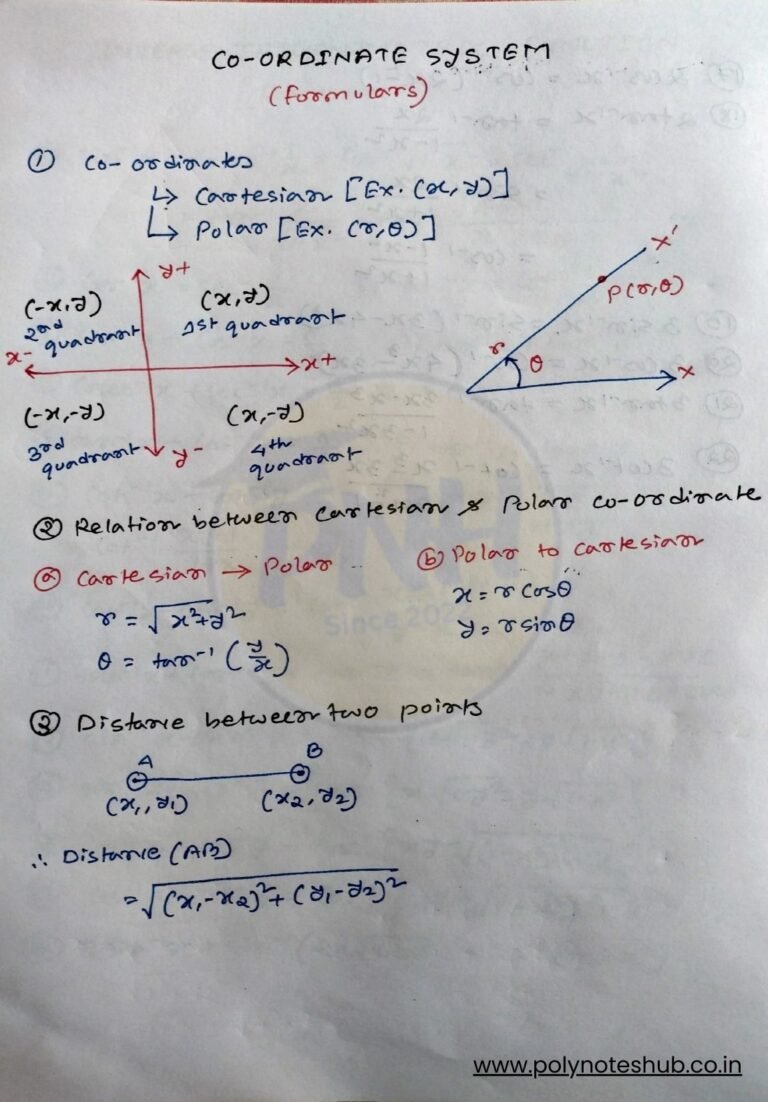 CO-ORDINATE SYSTEM
(formulars)
① Co-ordinates
↳ Cartesian [Ex. (x, y)]
↳ Polar [Ex. (r, θ)]
y+
(-x, y)
2nd quadrant
(x, y)
1st quadrant
x-
x+
(-x, -y)
3rd quadrant
y-
(x, -y)
4th quadrant
x'
P(r, θ)
r
θ
x
② Relation between Cartesian & Polar co-ordinate
ⓐ Cartesian → Polar
r = √x²+y²
θ = tan⁻¹ (y/x)
ⓑ Polar to cartesian
x = r cosθ
y = r sinθ
PNH
Since 202
③ Distane between two points
A
B
(x₁, y₁)
(x₂, y₂)
∴ Distane (AB)
= √(x₁-x₂)² + (y₁-y₂)²
www.polynoteshub.co.in